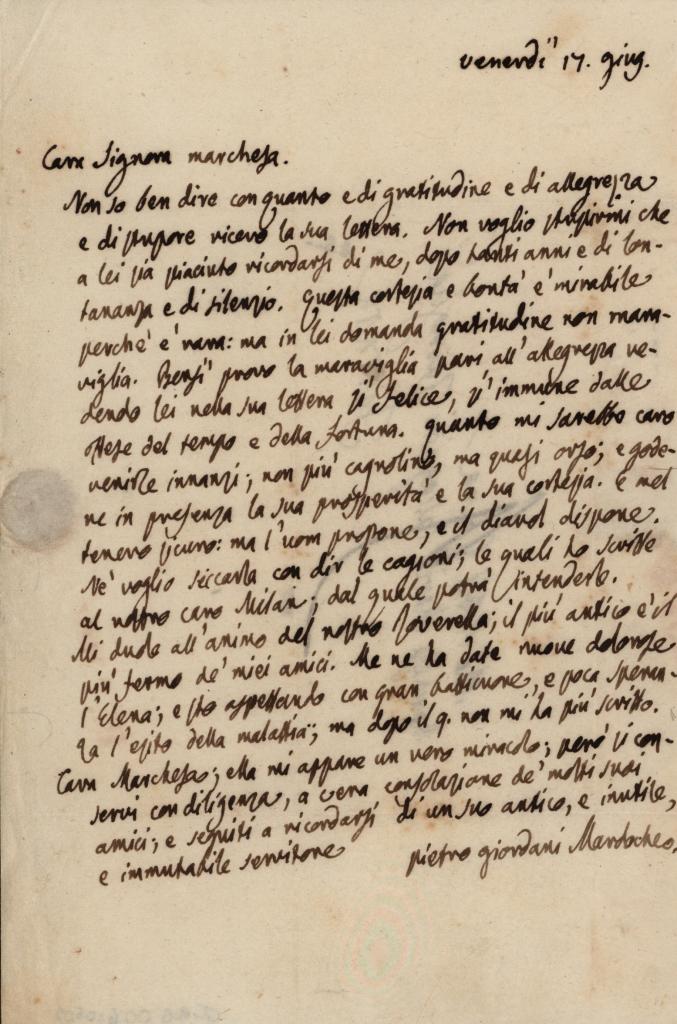 venerdì 17. giug.
Cara Signora marchesa.
Non so ben dire con quanto e di gratitudine e di allegrezza
e di stupore ricevo la sua lettera. Non voglio stupirmi che
a lei sia piaciuto ricordarsi di me, dopo tanti anni e di lon-
tananza e di silenzio. Questa cortesia e bontà è mirabile
perchè è rara: ma in lei domanda gratitudine non mara-
viglia. Bensì provo la maraviglia pari all'allegrezza ve-
dendo lei nella sua lettera sì felice, sì immune dalle
offese del tempo e della fortuna. quanto mi sarebbe caro
venirle innanzi; non più cagnolino, ma quasi orso; e gode-
re in presenza la sua prosperità e la sua cortesia. e mel
tenevo sicuro: ma l'uom propone, e il diavol dispone.
Nè voglio seccarla con dir le cagioni; le quali ho scritte
al nostro caro Milan; dal quale potrà intenderle.
Mi duole all'animo del nostro Roverella; il più antico e il
più fermo de' miei amici. Me ne ha date nuove dolorose
l'Elena; e sto aspettando con gran batticuore, e poca speran-
za l'esito della malattia; ma dopo il 9. non mi ha più scritto.
Cara Marchesa; ella mi appare un vero miracolo; però si con-
servi con diligenza, a vera consolazione de' molti suoi
amici; e seguiti a ricordarsi di un suo antico, e inutile,
e immutabile servitore
pietro giordani Mardocheo.